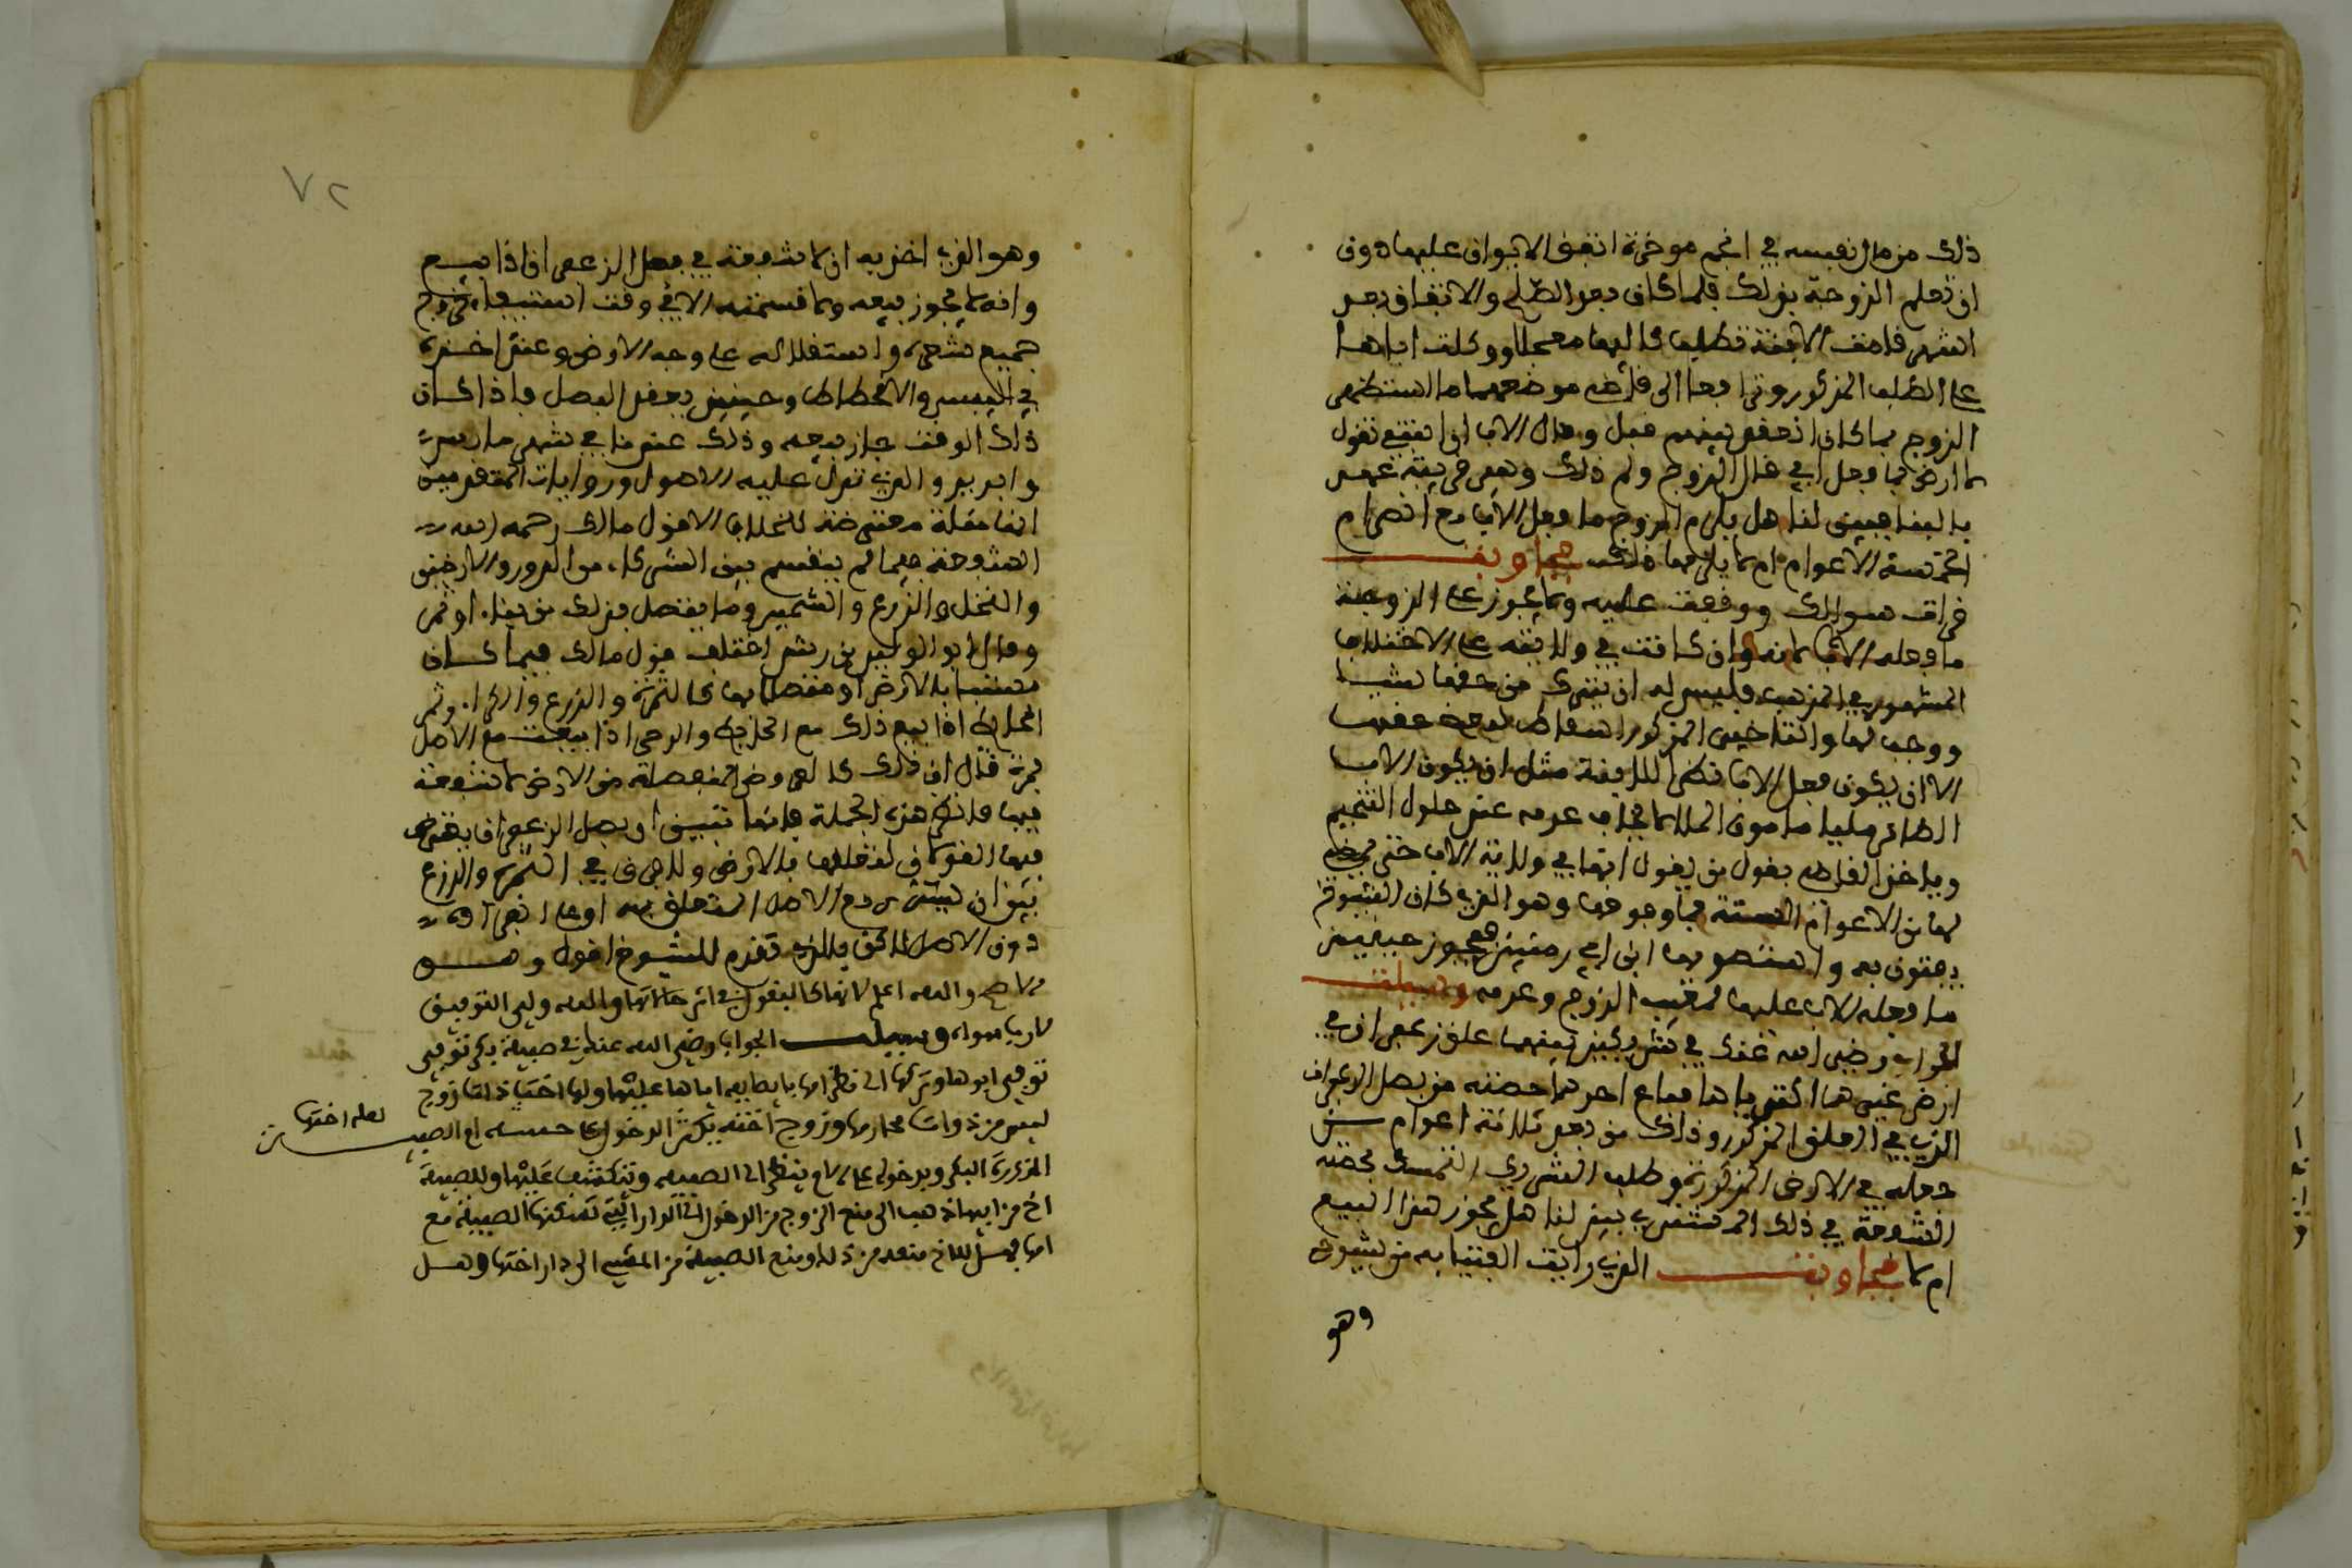 ذلك من مال نفسه في انجم موخرة اتفق الابوان عليها دون
ان تعلم الزوجة بذلك فلما كان بعد الصلح والاتفاق بعد
اشهر قامت الابنة تطلب كاليها معجلا ووكلت اباها
على الطلب المذكور وترافعا الى قاضي موضعهما فاستظهر
الزوج بما كان انعقد بينهم قبل وقال الاب ان ابنتي تقول
لا ارضى بما فعل ابي قال الزوج ولم ذلك وهي في بيته
بالبنا فبين لنا هل يلزم الزوج ما فعل الاب مع انصرام
الخمسة الاعوام ام لا يلزمها ذلك فجاوبت
قرات سوالك ووقفت عليه ولا يجوز على الزوجة
ما فعله الاب لانه وان كانت في ولايته على الاختلاف
المشهور في المذهب فليس له ان يترك من حقها شيئا
ووجب لها والتاخير المذكور اسقاط لبعض حقها
الا ان يكون فعل الاب نظرا للابنة مثل ان يكون الاب
الظاهر مليا مامون الحال لا يخاف عدمه عند حلول التنجيم
وياخذ القاضي بقول من يقول انها في ولاية الاب حتى يمضي
لها من الاعوام الستة فما فوقها وهو الذي كان الشيوخ
يفتون به واستصوبها ابن ابي زمنين فيجوز حينئذ
ما فعله الاب عليها لمغيب الزوج وعدمه وسيلت
الجواب رضي الله عنك في شريكين بينهما علق زعفران في
ارض غيرهما اكترياها فباع احدهما حصته من بصل الزعفران
الذي في العلق المذكور وذلك من بعد ثلاثة اعوام من
جعله في الارض المذكورة وطلب الشريك التمسك بحصته
الشفعة في ذلك المشتري بين لنا هل يجوز هذا البيع
ام لا فجاوبت الذي رايت الفتيا به من شيوخي
وهو
٧٢
وهو الذي اخذ به ان لا شفعة في بصل الزعفران اذا بيع
وانه لا يجوز بيعه ولا قسمته الا في وقت استيفاء خروج
جميع شعره واستقلاله على وجه الارض وعند اخذه
في اليبس والانحطاط وحينئذ يعقل البصل فاذا كان
ذلك الوقت جاز بيعه وذلك عندنا في شهر مارس
وابريل والذي تدل عليه الاصول وروايات المتقدمين
انها مسئلة معترضة للخلاف لقول مالك رحمه الله
الشفعة فيما لم ينقسم بين الشركاء من الدور والارضين
والنخل والزرع والشجر وما يتصل بذلك من بناء او ثمر
وقال ابو الوليد بن رشد اختلف قول مالك فيما كان
متشبثا بالارض او متصلا بها كالثمرة والزرع والكراء وثمر
الحائط اذا بيع ذلك مع الحائط والرحى اذا بيعت مع الاصل
فمرة قال ان ذلك كالعروض المنفصلة من الارض لا شفعة
فيها فانظر هذه الجملة فانها تبين ان بصل الزعفران يعترض
فيها القولان لتعلقها بالارض وللفرق في الثمرة والزرع
بين ان يشترى مع الاصل المتعلق به او على انفراده
دون الاصل لاكن بالذي تقدم للشيوخ اقول وهو
الاصح والله اعلم لانها كالبقول في اكثر حالاتها والله ولي التوفيق
لا رب سواه وسيلت الجواب رضي الله عنك في صبية بكر توفي
توفي ابوها وتركها الى نظر امها بايصايه اياها عليها ولها اخت ذات زوج
ليس من ذوات محارمها وزوج اخته يكثر الدخول على الصبية
لعله اختها
المذكورة البكر وبدخوله على الام ينظر الى الصبية وتنكشف عليه وللصبية
اخ من ابيها ذهب الى منع الزوج من الدخول الى الدار التي تسكنها الصبية مع
امها فهل للاخ منعه من ذلك ومنع الصبية من المشي الى دار اختها وهل